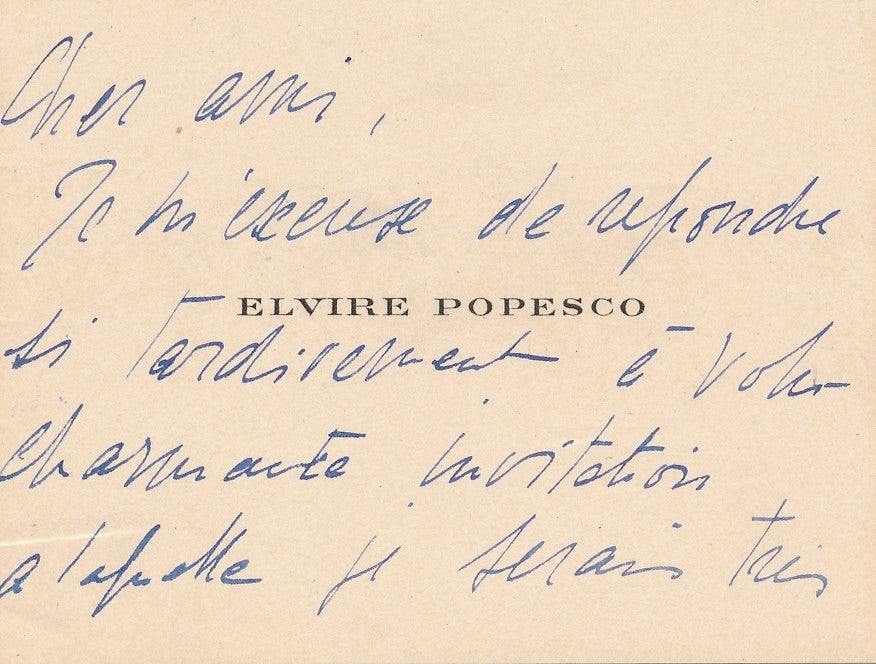 Cher ami,
Je m'excuse de repondre
ELVIRE POPESCO
si tardivement à votre
charmante invitation
a laquelle je serais très